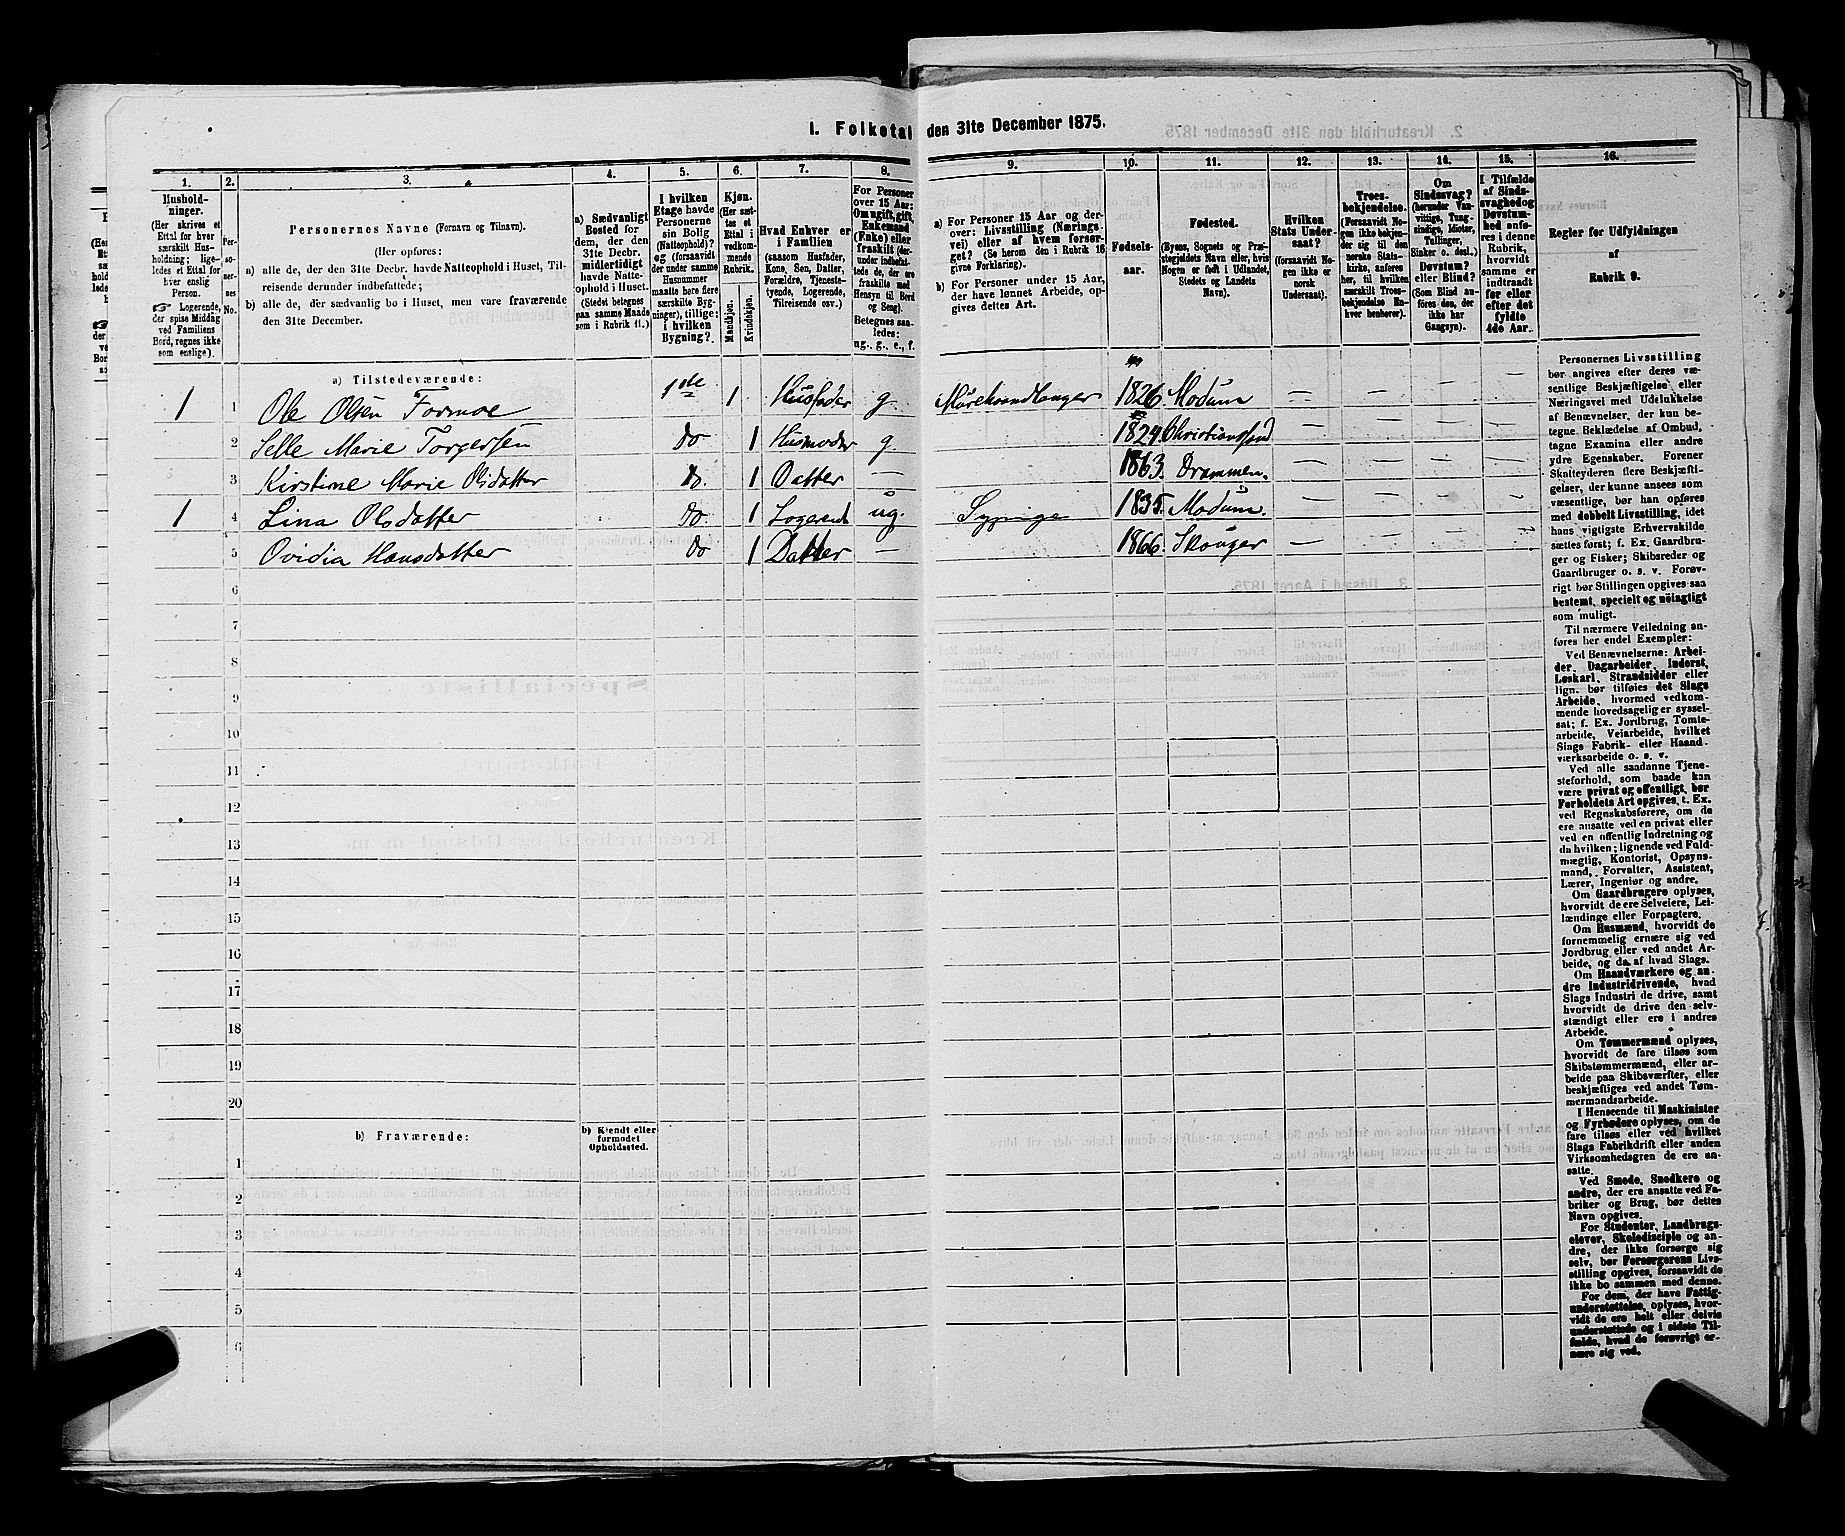 1. Folketal den 31te December 1875.
1. 2. 3. 4. 5. 6. 7. 8. 9. 10. 11. 12. 13. 14. 15. 16.
Hushold-
ninger.
(Her skrives et
Ettal for hver
særskilt Hus-
holdning; lige-
ledes et Ettal for
hver enslig
Person.
Logerende,
der spise Middag
ved Familiens
Bord, regnes ikke
som enslige).
Per-
so-
ner-
nes
No.
Personernes Navne (Fornavn og Tilnavn).
(Her opføres:
a) alle de, der den 31te Decbr. havde Natteophold i Huset, Til-
reisende derunder indbefattede;
b) alle de, der sædvanlig bo i Huset, men vare fraværende
den 31te December.
a) Sædvanligt
Bosted for
dem, der den
31te Decbr.
midlertidigt
havde Natte-
ophold i Huset.
(Stedet betegnes
paa samme Maade
som i Rubrik 11.)
I hvilken
Etage havde
Personerne
sin Bolig
(Natteophold)?
og (forsaavidt
der under samme
Husnummer
maatte høre flere
særskilte Byg-
ninger), tillige:
i hvilken
Bygning?
Kjøn.
(Her sæt-
tes et
Ettal i
vedkom-
mende
Rubrik.
Mandkjøn.
Kvindekjøn.
Hvad Enhver er
i Familien
(saasom Husfader,
Kone, Søn, Datter,
Forældre, Tjeneste-
tyende, Logerende,
Tilreisende osv.)
For Personer
over 15 Aar:
Om ugift, gift,
Enkemand
(Enke) eller
fraskilt (der-
under indbefat-
tede de, der ere
fraskilte med
Hensyn til Bord
og Seng).
Betegnes saa-
ledes:
ug., g., e., f.
a) For Personer 15 Aar og der-
over: Livsstilling (Nærings-
vei) eller af hvem forsør-
get? (Se herom den i Rubrik 16
givne Forklaring).
b) For Personer under 15 Aar,
der have lønnet Arbeide, op-
gives dettes Art.
Fødsels-
aar.
Fødested.
(Byens, Sognets og Præ-
stegjeldets Navn eller, hvis
Nogen er født i Udlandet,
Stedets og Landets
Navn).
Hvilken
Stats Under-
saat?
(forsaavidt No-
gen ikke er
norsk
Undersaat).
Troes-
bekjendelse.
(Forsaavidt No-
gen ikke bekjen-
der sig til den
norske Stats-
kirke, anføres
her, til hvilken
særskilt Troes-
bekjendelse En-
hver henhører).
Om
Sindssvag?
(herunder Van-
vittige, Tung-
sindige, Idioter,
Tullinger,
Sinker o. desl.)
Døvstum?
eller Blind?
(Som Blind an-
føres den, der
ikke har
Gangsyn).
I Tilfælde
af Sinds-
svaghed og
Døvstum-
hed anfø-
res i denne
Rubrik,
hvorvidt
samme er
indtraadt
før eller
efter det
fyldte
4de Aar.
Regler for Udfyldningen
af
Rubrik 9.
a) Tilstedeværende:
1 1 Ole Olsen Formoe 1de 1 Husfader g 1826 Modum — — — —
2 Marie Torgersen do 1 Husmoder g 1829 — — — —
3 Kirstine Marie Olsdatter do. 1 Datter — 1863. Drammen. — — — —
1 4 Lina Olsdatter do. 1 Logerende ug. Sypige 1835. Modum. — — — —
5 Ovidia Hansdatter do 1 Datter — 1866. Skouger — — —
6
7
8
9
10
11
12
13
14
15
16
17
18
19
20
b) Fraværende:
b) Kjendt eller
formodet
Opholdssted.
1
2
3
4
5
6
Personernes Livsstilling
bør angives efter deres væ-
sentlige Beskjæftigelse eller
Næringsvei med Udelukkelse
af Benævnelser, der kun be-
tegne Beklædelse af Ombud,
tagne Examina eller andre
ydre Egenskaber. Forener
Skatteyderen flere Beskjæfti-
gelser, der kunne ansees som
væsentlige, bør han opføres
med dobbelt Livsstilling, idet
hans vigtigste Erhvervskilde
sættes først; f. Ex. Gaardbru-
ger og Fisker; Skibsreder og
Gaardbruger o. s. v. Forøv-
rigt bør Stillingen opgives saa
bestemt, specielt og nøiagtigt
som muligt.
Til nærmere Veiledning an-
føres her endel Exempler:
Ved Benævnelserne: Arbei-
der, Dagarbeider, Inderst,
Løskarl, Strandsidder eller
lign. bør tilføies det Slags
Arbeide, hvormed vedkom-
mende hovedsagelig er syssel-
sat; f. Ex. Jordbrug, Tomte-
arbeide, Veiarbeide, hvilket
Slags Fabrik- eller Haand-
værksarbeide o. s. v.
Ved alle saadanne Tjene-
steforhold, som baade kan
være privat og offentligt, bør
Forholdets Art opgives, t. Ex.
ved Regnskabsførere, om de
ere ansatte ved en privat eller
ved en offentlig Indretning og
da hvilken; lignende ved Fuld-
mægtig, Kontorist, Opsyns-
mand, Forvalter, Assistent,
Lærer, Ingeniør og andre.
Om Gaardbrugere oplyses,
hvorvidt de ere Selveiere, Lei-
lændinge eller Forpagtere.
Om Husmænd, hvorvidt de
fornemmelig ernære sig ved
Jordbrug eller ved andet Ar-
beide, og da af hvad Slags.
Om Haandværkere og an-
dre Industridrivende, hvad
Slags Industri de drive, samt
hvorvidt de drive den selv-
stændigt eller ere i andres
Arbeide.
Om Tømmermænd oplyses,
hvorvidt de fare tilsøs som
Skibstømmermænd, eller ar-
beide paa Skibsværfter, eller
beskjæftiges ved andet Tøm-
mermandsarbeide.
I Henseende til Maskinister
og Fyrbødere oplyses, om de
fare tilsøs eller ved hvilket
Slags Fabrikdrift eller anden
Virksomhedsgren de ere an-
satte.
Ved Smede, Snedkere og
andre, der ere ansatte ved Fa-
briker og Brug, bør dettes
Navn opgives.
For Studenter, Landbrugs-
elever, Skoledisciple og an-
dre, der ikke forsørge sig
selv, bør Forsørgerens Livs-
stilling opgives, forsaavidt de
ikke bo sammen med denne.
For dem, der have Fattig-
understøttelse, oplyses, hvor-
vidt de ere helt eller delvis
understøttede og i sidste Til-
fælde, hvad de forøvrigt er-
nære sig ved.